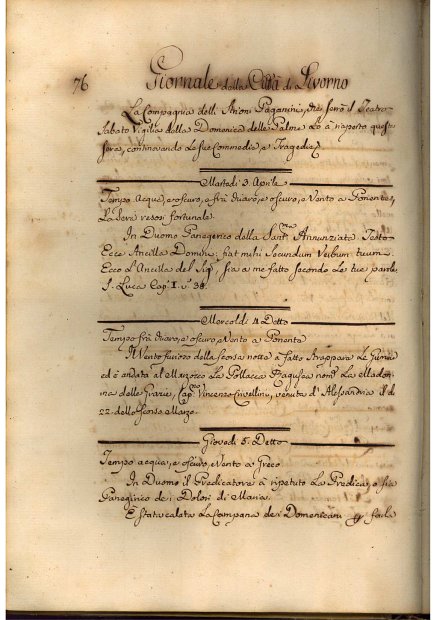 76 Giornale della Città di Livorno
La Compagnia delli Attori Paganini, che serrò il Teatro
Sabato Vigilia della Domenica delle Palme lo à riaperto questa
sera, continovando le sue Commedie, e Tragedie
Martedi 3. Aprile
Tempo Acqua, e oscuro, e frà chiaro, e oscuro, e Vento a Ponente,
La sera resosi fortunale.
In Duomo Panegerico della Sant.ma Annunziata Testo
Ecce Ancilla Domini: fiat mihi secundum Verbum tuum.
Ecco l'Ancilla del Sig.re, sia a me fatto secondo le tue parole
S. Luca Cap. I. v. 38.
Mercoldi 4. Detto
Tempo frà chiaro, e oscuro, e Vento a Ponente
Il Vento furioso della scorsa notte à fatto strappare le
ed è andata al Marzocco la Pollacca Ragusea nom.ta la Madon-
na delle Grazie, Cap.no Vincenzo Crivellini, venuta d'Alessandria il dì
22. dello scorso Marzo.
Giovedi 5. Detto
Tempo acqua, e oscuro, e Vento a Greco
In Duomo il Predicatore à ripetuto la Predica, o sia
Panegirico de i Dolori di Maria.
È stata calata la Campana dei Domenicani